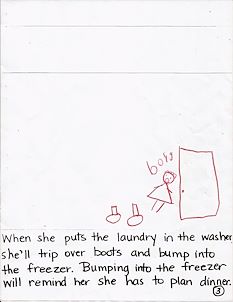 boots
When she puts the laundry in the washer
she'll trip over boots and bump into
the freezer. Bumping into the freezer
will remind her she has to plan dinner.
3